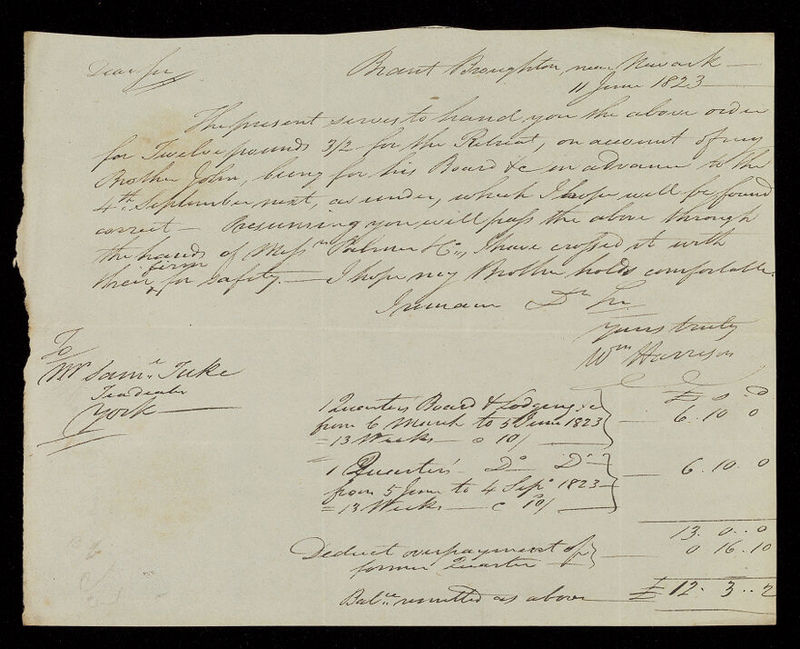 Brant Broughton, near Newark
11 June 1823
Dear Sir
The present serves to hand you the above order
for Twelve pounds 3/2 for the Retreat, on account of my
Brother John, being for his Board &c in advance to the
4th September next, as under, which I hope will be found
correct — Presuming you will pass the above through
the hands of Messrs Palmer & Co., I have crossed it with
their firm for safety. — I hope my Brother holds comfortable.
I remain Dr Sir
Yours truly
Wm Harrison
To
Mr Saml. Tuke
Teadealer
York
£ s d
1 Quarters Board & Lodging &c
from 6 March to 5 June 1823
= 13 Weeks — @ 10/ — 6. 10 0
1 Quarter's Do Do
from 5 June to 4 Sepr 1823
= 13 Weeks — @ 10/ — 6. 10. 0
13. 0..0
Deduct overpayment of
former Quarter — 0 16. 10
Balce. remitted as above — £ 12. 3..2